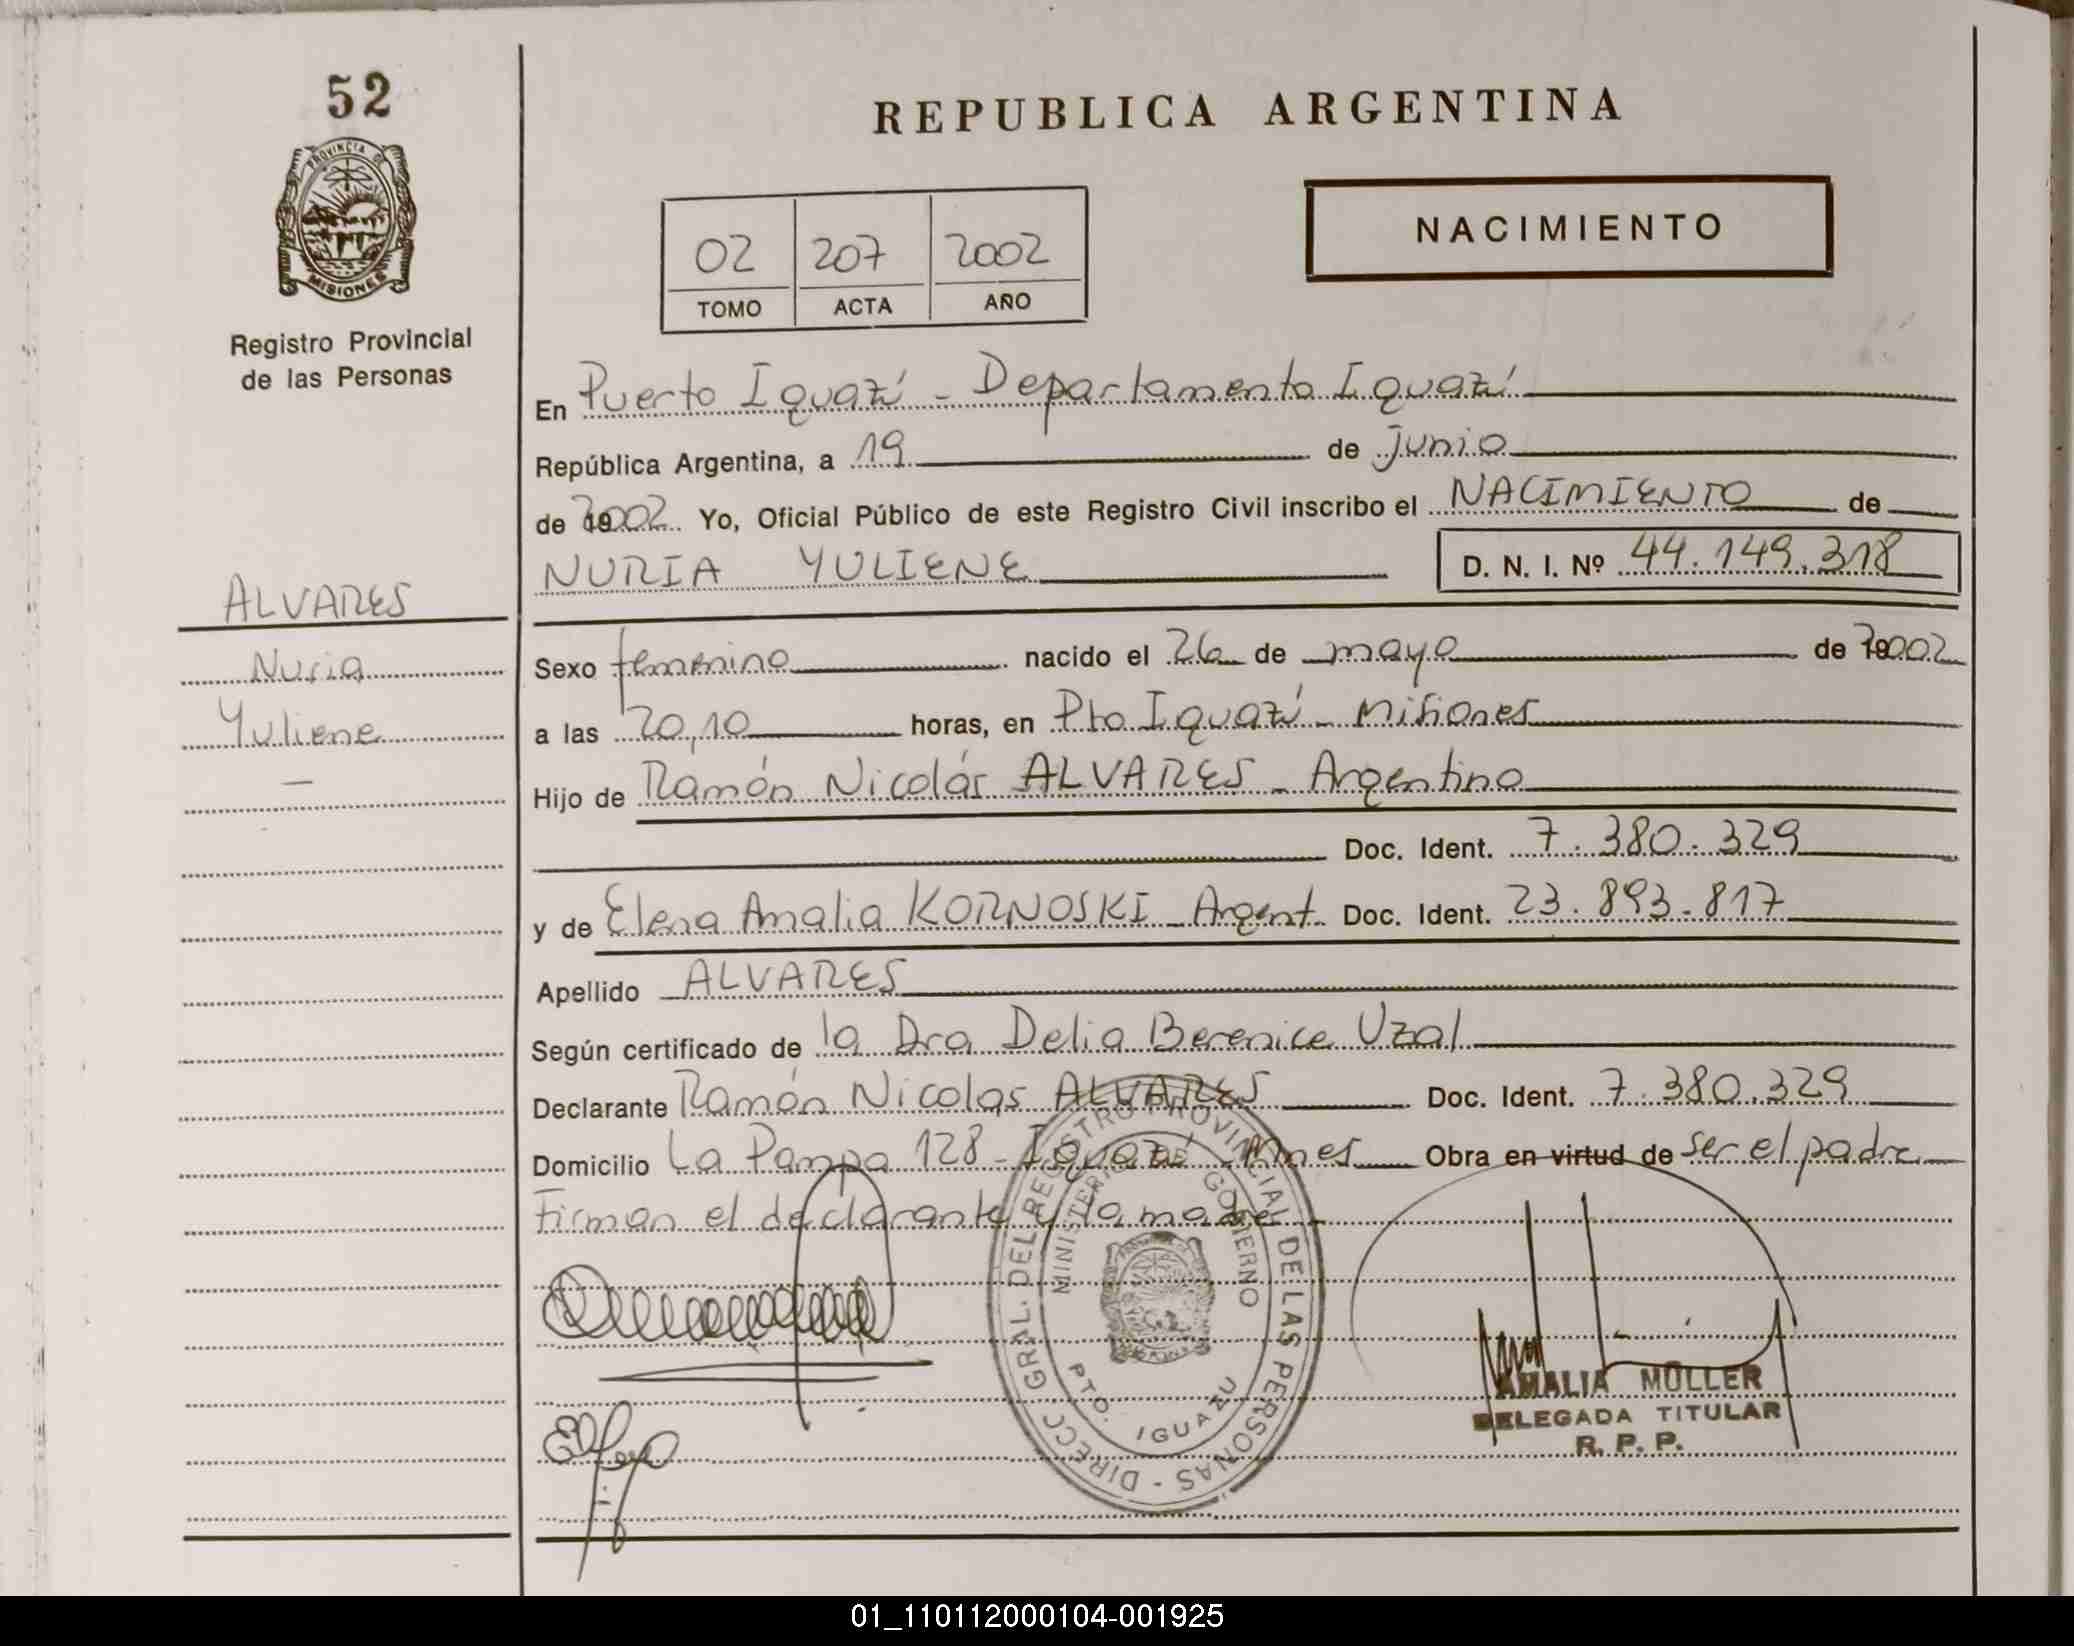 52
REPUBLICA ARGENTINA
PROVINCIA DE
MISIONES
NACIMIENTO
02 207 2002
TOMO ACTA AÑO
Registro Provincial
de las Personas
En Puerto Iguazú - Departamento Iguazú
República Argentina, a 19 de junio
de 2002 Yo, Oficial Público de este Registro Civil inscribo el NACIMIENTO de
NURIA YULIENE D. N. I. Nº 44.149.318
ALVARES
Nuria
Yuliene
Sexo femenino nacido el 26 de mayo de 2002
a las 20,10 horas, en Pto Iguazú - Misiones
Hijo de Ramón Nicolás ALVARES - Argentino
Doc. Ident. 7.380.329
y de Elena Amalia KORNOSKI - Argent. Doc. Ident. 23.893.817
Apellido ALVARES
Según certificado de la Dra Delia Berenice Uzal
Declarante Ramón Nicolas ALVARES Doc. Ident. 7.380.329
Domicilio La Pampa 128 - Iguazú - Mnes Obra en virtud de ser el padre
Firman el declarante y la madre
DIRECC GRAL. DEL REGISTRO PROVINCIAL DE LAS PERSONAS -
MINISTERIO DE GOBIERNO
PTO. IGUAZU
AMALIA MÜLLER
DELEGADA TITULAR
R. P. P.
01_110112000104-001925